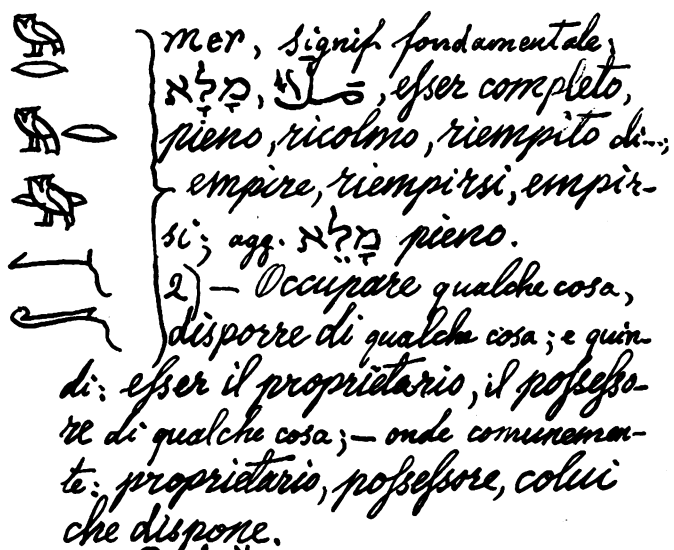 mer, signif. fondamentale;
מָלָא, esser completo,
pieno, ricolmo, riempito di...;
empire, riempirsi, empir-
si; agg. מָלֵא pieno.
2) — Occupare qualche cosa,
disporre di qualche cosa; e quin-
di: esser il proprietario, il possesso-
re di qualche cosa; — onde comunemen-
te: proprietario, possessore, colui
che dispone.